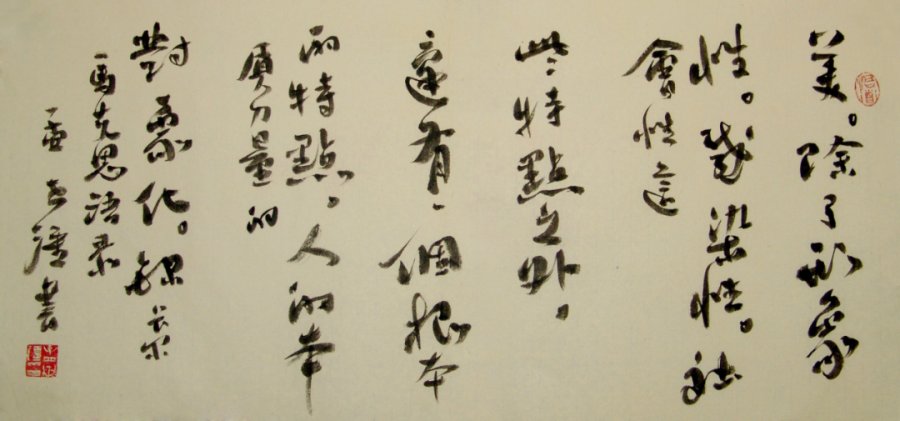 美。除了形象
性。感染性。社
會性這
些特點之外。
還有一個根本
的特點，人的本
質力量的
對象化。錄
馬克思語录
孟書